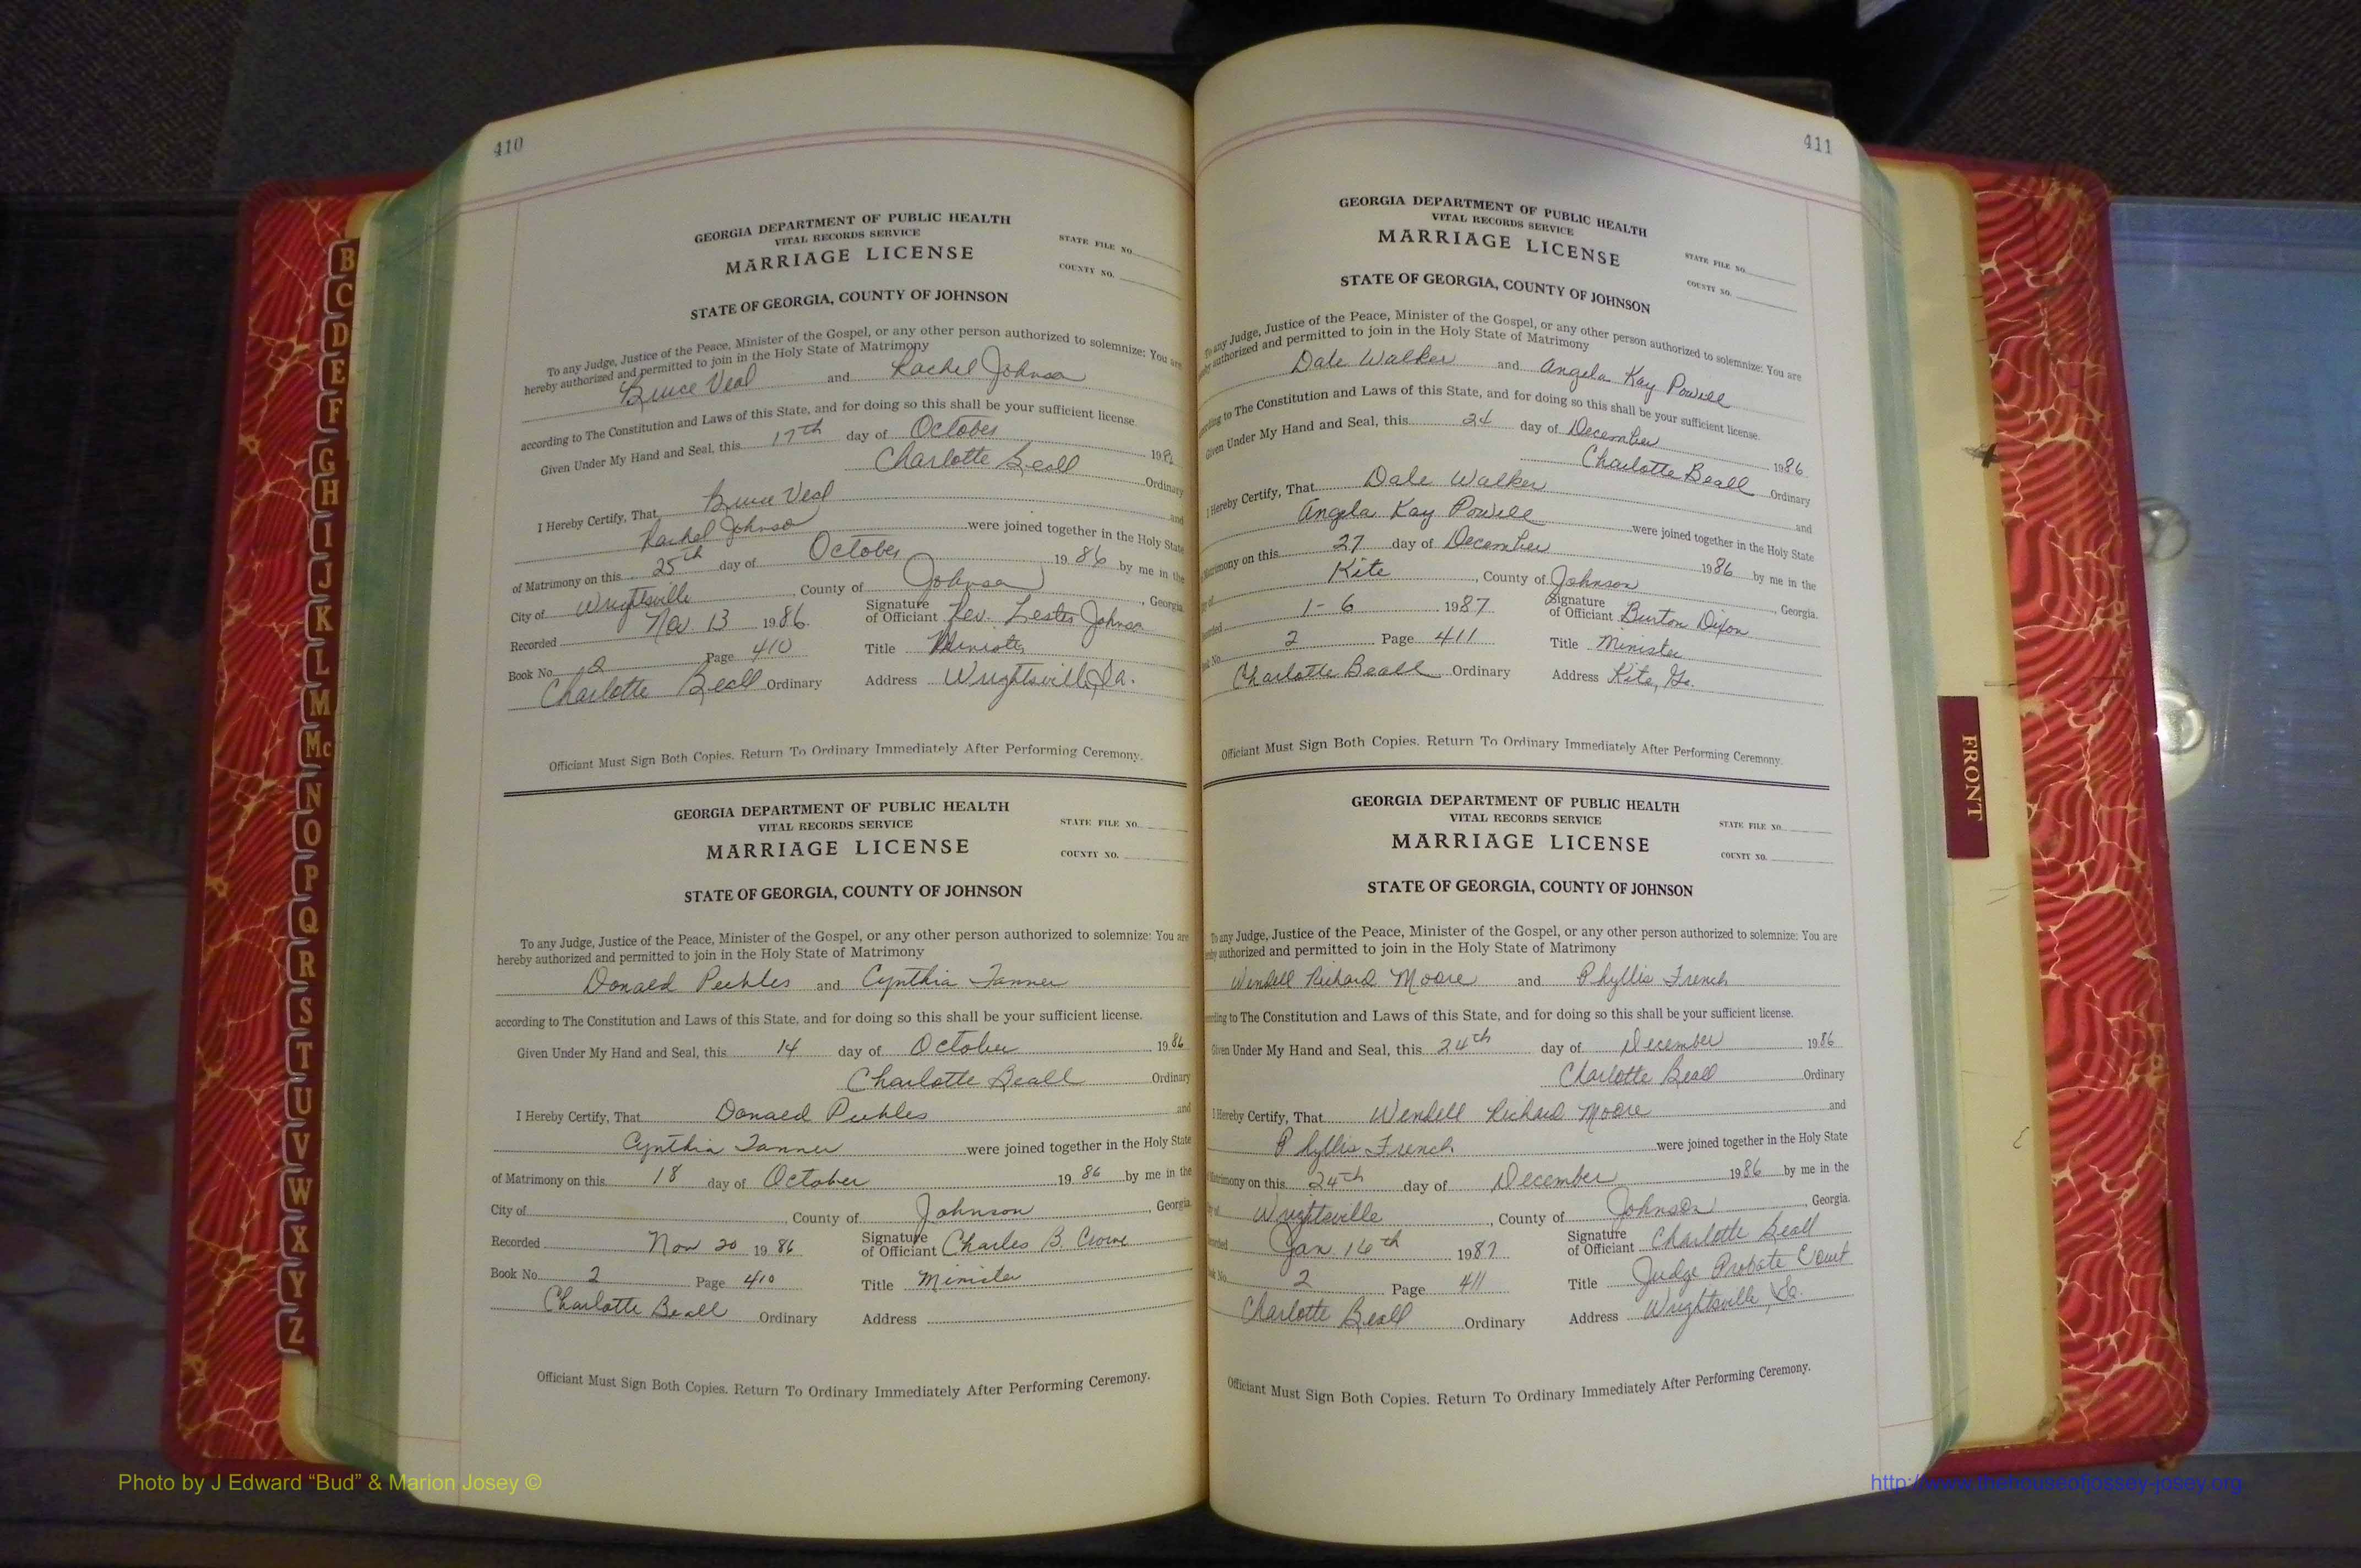 410
GEORGIA DEPARTMENT OF PUBLIC HEALTH
VITAL RECORDS SERVICE
MARRIAGE LICENSE
STATE FILE NO.
COUNTY NO.
STATE OF GEORGIA, COUNTY OF JOHNSON
To any Judge, Justice of the Peace, Minister of the Gospel, or any other person authorized to solemnize: You are
hereby authorized and permitted to join in the Holy State of Matrimony
Bruce Veal and Rachel Johnson
according to The Constitution and Laws of this State, and for doing so this shall be your sufficient license.
Given Under My Hand and Seal, this 17th day of October 198
Charlotte Beall Ordinary
I Hereby Certify, That Bruce Veal and
Rachel Johnson were joined together in the Holy State
of Matrimony on this 25th day of October 1986 by me in the
City of Wrightsville, County of Johnson, Georgia
Recorded Nov. 13 1986. Signature of Officiant Rev. Lester Johnson
Book No. 2 Page 410 Title Minister
Charlotte Beall Ordinary Address Wrightsville, Ga.
Officiant Must Sign Both Copies. Return To Ordinary Immediately After Performing Ceremony.
GEORGIA DEPARTMENT OF PUBLIC HEALTH
VITAL RECORDS SERVICE
MARRIAGE LICENSE
STATE FILE NO.
COUNTY NO.
STATE OF GEORGIA, COUNTY OF JOHNSON
To any Judge, Justice of the Peace, Minister of the Gospel, or any other person authorized to solemnize: You are
hereby authorized and permitted to join in the Holy State of Matrimony
Donald Peebles and Cynthia Tanner
according to The Constitution and Laws of this State, and for doing so this shall be your sufficient license.
Given Under My Hand and Seal, this 14 day of October 1986
Charlotte Beall Ordinary
I Hereby Certify, That Donald Peebles and
Cynthia Tanner were joined together in the Holy State
of Matrimony on this 18 day of October 1986 by me in the
City of , County of Johnson, Georgia
Recorded Nov 20 1986 Signature of Officiant Charles B. Crowe
Book No. 2 Page 410 Title Minister
Charlotte Beall Ordinary Address
Officiant Must Sign Both Copies. Return To Ordinary Immediately After Performing Ceremony.
411
GEORGIA DEPARTMENT OF PUBLIC HEALTH
VITAL RECORDS SERVICE
MARRIAGE LICENSE
STATE FILE NO.
COUNTY NO.
STATE OF GEORGIA, COUNTY OF JOHNSON
To any Judge, Justice of the Peace, Minister of the Gospel, or any other person authorized to solemnize: You are
authorized and permitted to join in the Holy State of Matrimony
Dale Walker and Angela Kay Powell
to The Constitution and Laws of this State, and for doing so this shall be your sufficient license.
Given Under My Hand and Seal, this 24 day of December 1986
Charlotte Beall Ordinary
I Hereby Certify, That Dale Walker and
Angela Kay Powell were joined together in the Holy State
Matrimony on this 27 day of December 1986 by me in the
Kite, County of Johnson, Georgia.
1-6 1987 Signature of Officiant Burton Dixon
2 Page 411 Title Minister
Charlotte Beall Ordinary Address Kite, Ga.
Officiant Must Sign Both Copies. Return To Ordinary Immediately After Performing Ceremony.
GEORGIA DEPARTMENT OF PUBLIC HEALTH
VITAL RECORDS SERVICE
MARRIAGE LICENSE
STATE FILE NO.
COUNTY NO.
STATE OF GEORGIA, COUNTY OF JOHNSON
To any Judge, Justice of the Peace, Minister of the Gospel, or any other person authorized to solemnize: You are
authorized and permitted to join in the Holy State of Matrimony
Wendell Richard Moore and Phyllis French
to The Constitution and Laws of this State, and for doing so this shall be your sufficient license.
Given Under My Hand and Seal, this 24th day of December 1986
Charlotte Beall Ordinary
I Hereby Certify, That Wendell Richard Moore and
Phyllis French were joined together in the Holy State
Matrimony on this 24th day of December 1986 by me in the
Wrightsville, County of Johnson, Georgia.
Jan. 16th 1987 Signature of Officiant Charlotte Beall
2 Page 411 Title Judge Probate Court
Charlotte Beall Ordinary Address Wrightsville, Ga.
Officiant Must Sign Both Copies. Return To Ordinary Immediately After Performing Ceremony.
B
C
D
E
F
G
H
I
J
K
L
M
Mc
N
O
P
Q
R
S
T
U
V
W
X
Y
Z
FRONT
Photo by J Edward “Bud” & Marion Josey ©
http://www.thehouseofjossey-josey.org